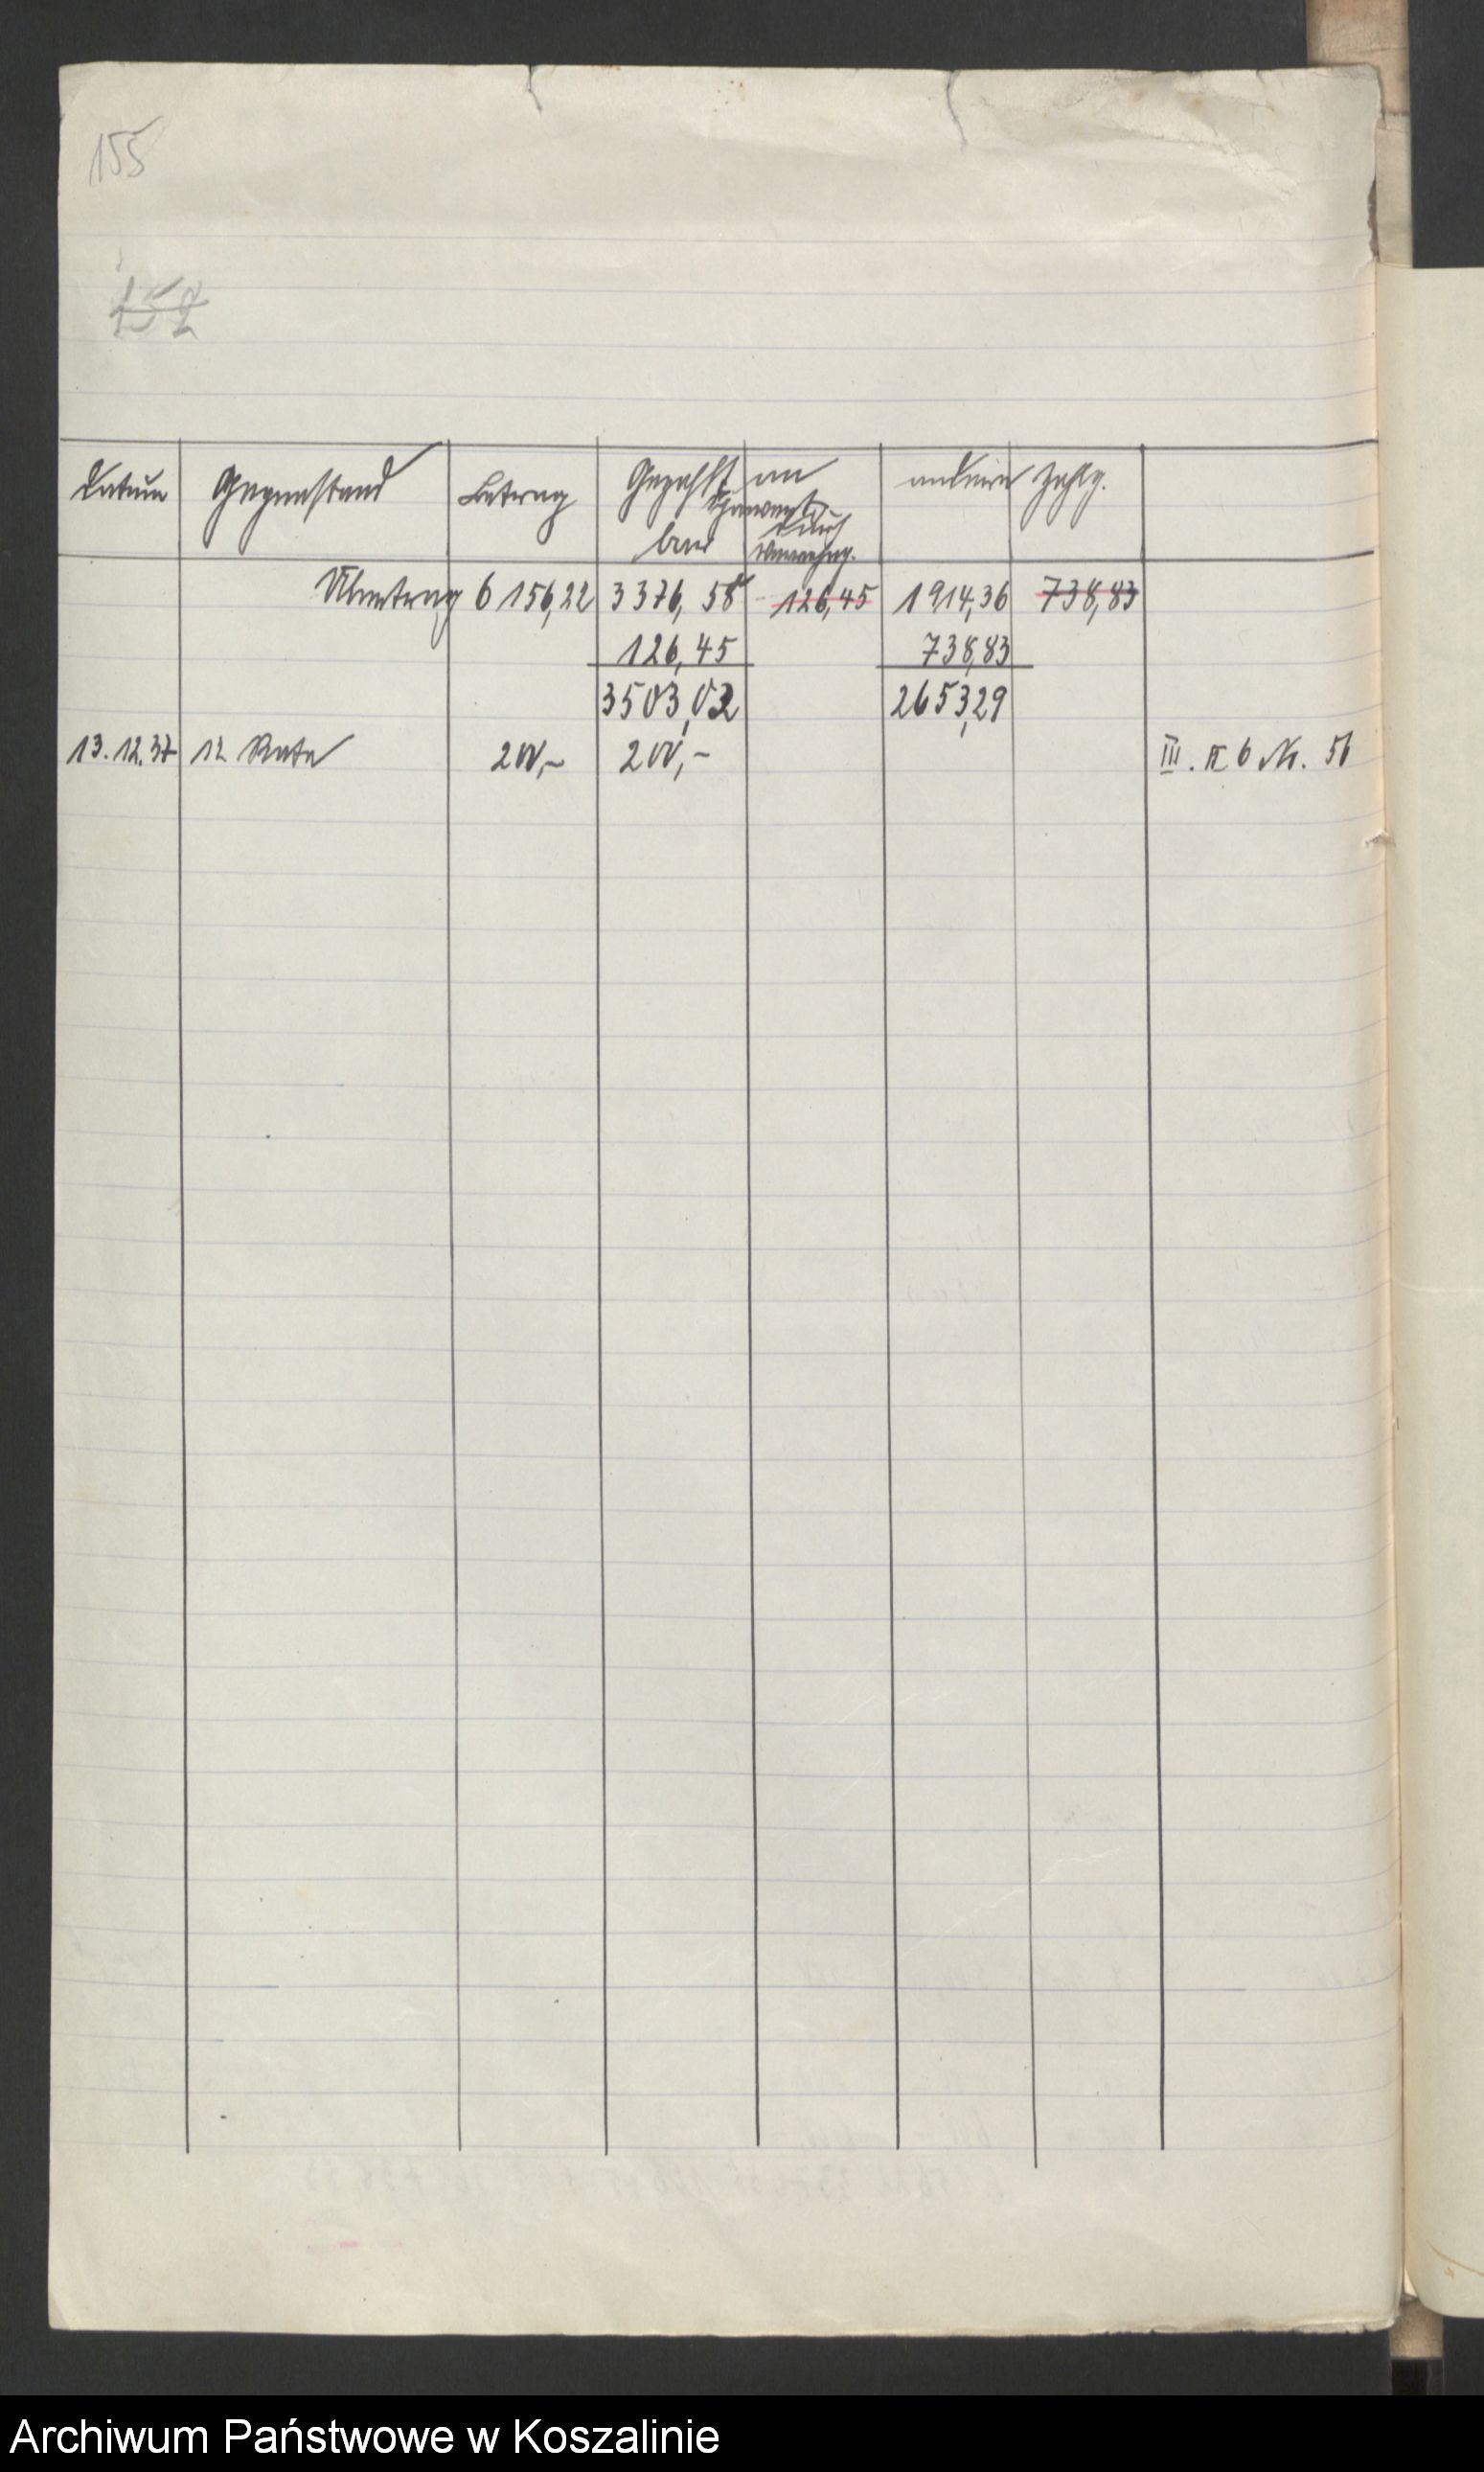 155
152
Datum Gegenstand Betrag Gezahlt an andere Zahlg.
durch
bar Verrechng.
Übertrag 6 156,22 3376,58 126,45 1914,36 738,83
126,45 738,83
3503,02 2653,29
13.12.37 12 Rate 200,- 200,- III. π 6 Nr. 56
Archiwum Państwowe w Koszalinie